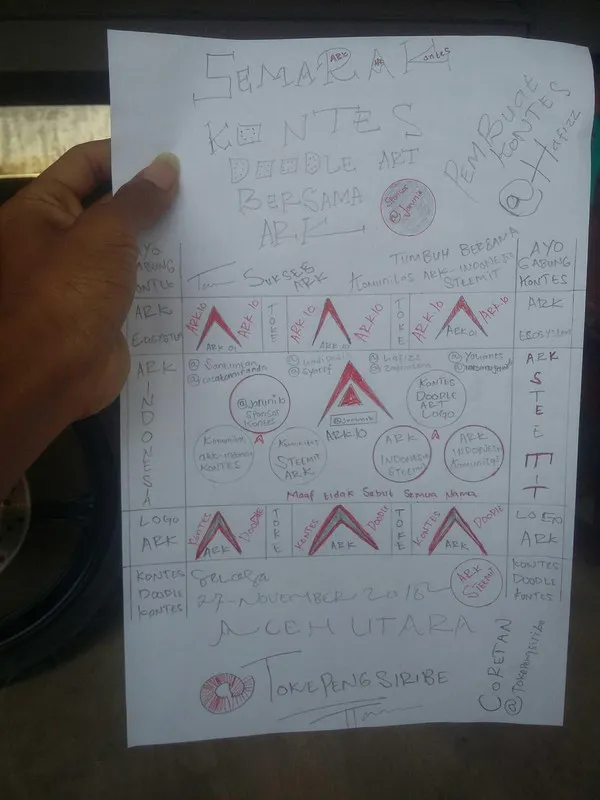 SEMARAK ARK Kontes
KONTES
DOODLE ART
BERSAMA
ARK
Sponsor @Jarunik
PEMBUAT KONTES
@Hafizz
AYO GABUNG KONTEK
SUKSES ARK
TUMBUH BERSAMA
Komunitas ARK-INDONESI STEEMIT
AYO GABUNG KONTES
ARK EcoSystem
ARK.IO ARK.IO ARK.OI
TOKE
ARK.IO ARK.IO ARK.IO
TOKE
ARK.IO ARK.IO ARK.OI
ARK EcoSystem
ARK INDONESIA
@Syaref
@Hafizz
@Younmes
ARK STEEMIT
@Jarunik Sponsor Kontes
@Jarunik
ARK.IO
KONTES DOODLE ART LOGO
KONTES
Komunitas STEEMIT ARK
ARK INDONESIA STEEMIT
ARK INDONESIA Komunitas
Maaf tidak Sebut Semua Nama
LOGO ARK
KONTES DOODLE ARK
TOKE
KONTES DOODLE ARK
TOKE
KONTES DOODLE ARK
LOGO ARK
KONTES DOODLE KONTES
SELASA
27-NOVEMBER 2018
ARK STEEM
KONTES DOODLE KONTES
ACEH UTARA
TOKEPENGSIRIBE
CORETAN
@Tokepengsiribe